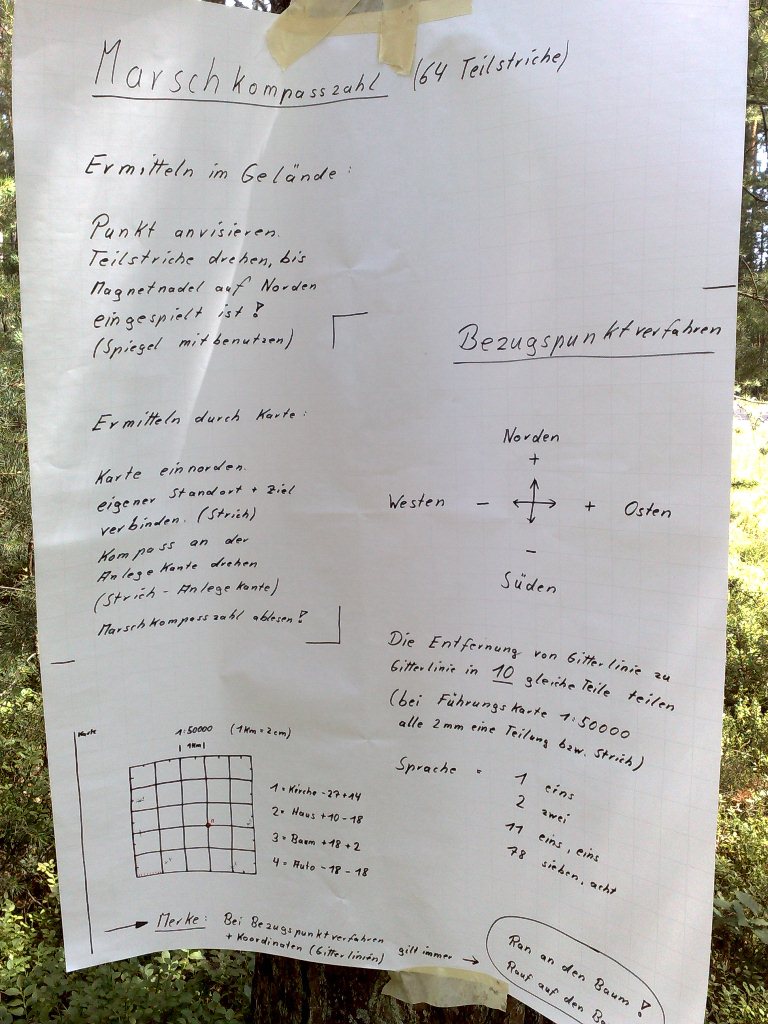 Marschkompasszahl (64 Teilstriche)
Ermitteln im Gelände:
Punkt anvisieren.
Teilstriche drehen, bis
Magnetnadel auf Norden
eingespielt ist!
(Spiegel mitbenutzen)
Ermitteln durch Karte:
Karte einnorden.
eigener Standort + Ziel
verbinden. (Strich)
Kompass an der
Anlegekante drehen
(Strich - Anlegekante)
Marschkompasszahl ablesen!
Bezugspunktverfahren
Norden
+
Westen - + Osten
-
Süden
Die Entfernung von Gitterlinie zu
Gitterlinie in 10 gleiche Teile teilen
(bei Führungskarte 1:50000
alle 2mm eine Teilung bzw. Strich)
Sprache = 1 eins
2 zwei
11 eins, eins
78 sieben, acht
Karte
1:50000 (1Km = 2cm)
1Km
1 = Kirche -27+14
2 = Haus +10 -18
3 = Baum +18 +2
4 = Auto -18 -18
Merke: Bei Bezugspunktverfahren
+ Koordinaten (Gitterlinien) gilt immer
Ran an den Baum!
Rauf auf den